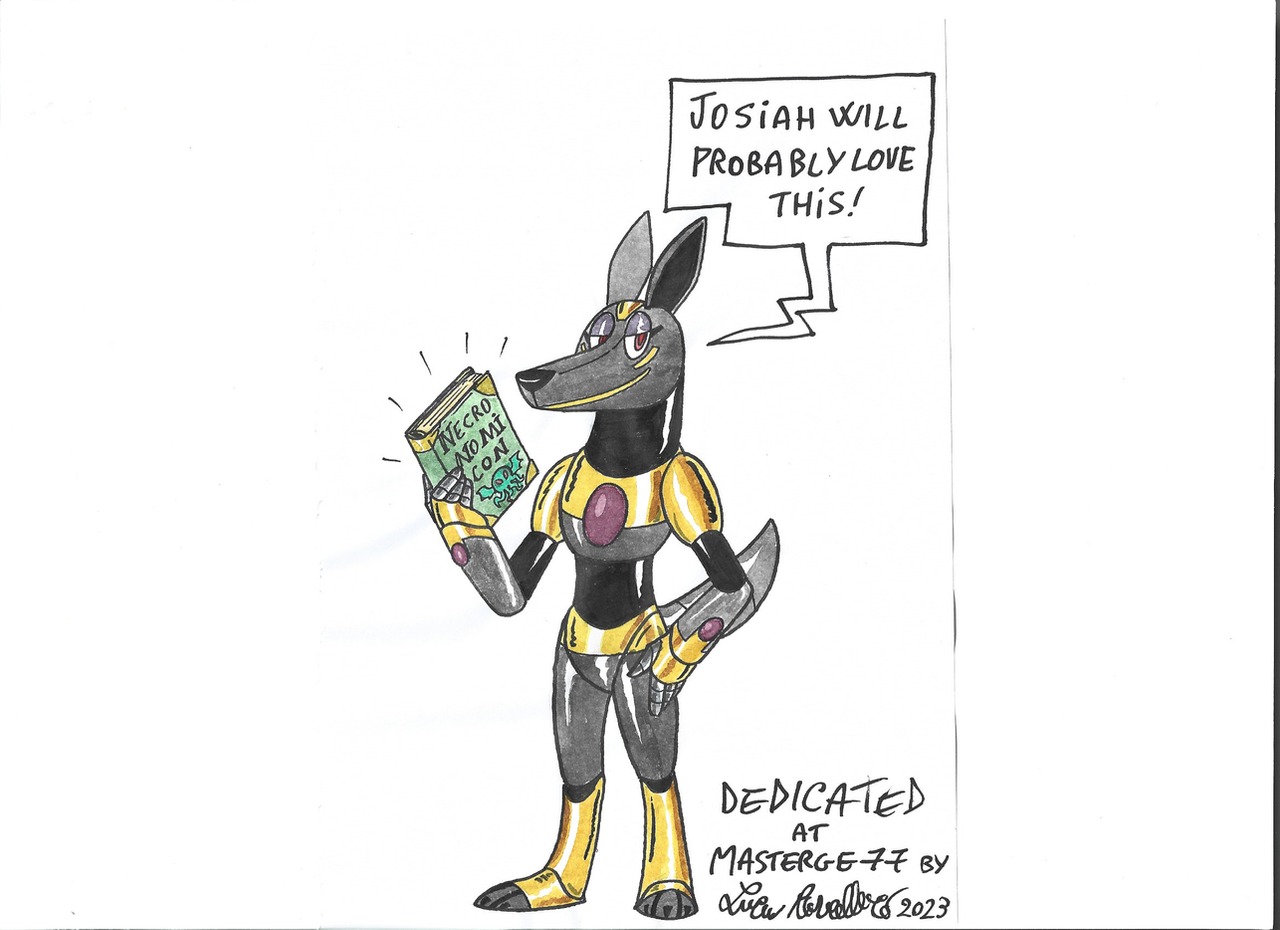 JOSiAH WILL
PROBABLY LOVE
THiS!
NECRO
NOMi
CON
DEDICATED
AT
MASTERGE-77 BY
2023